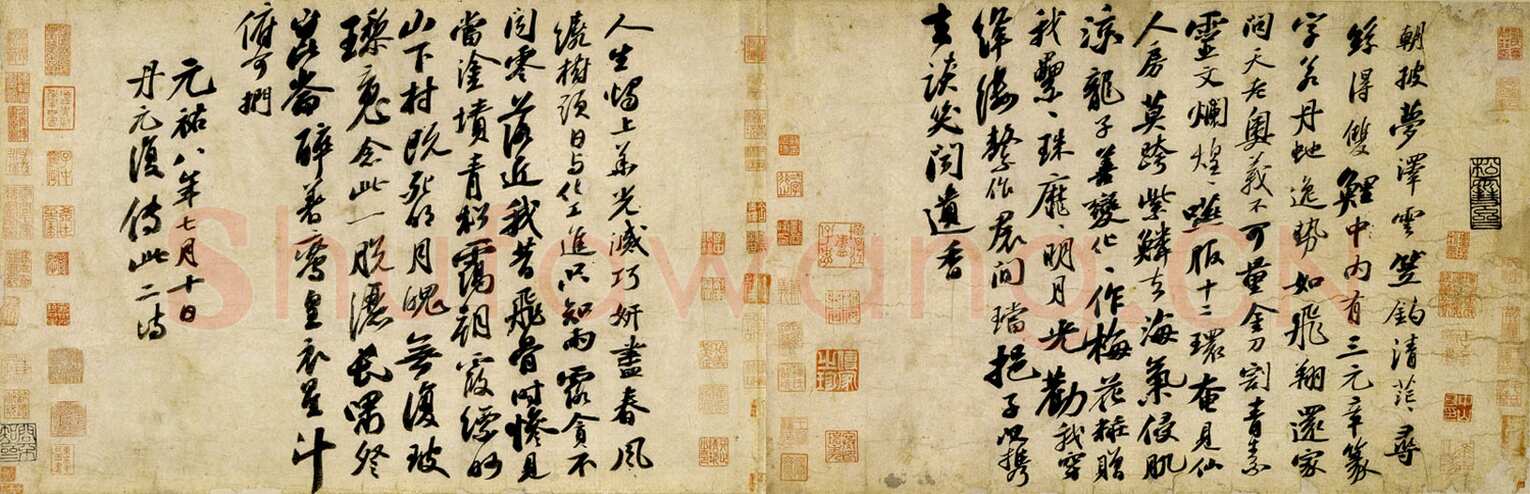 朝披夢澤雲笠釣清茫茫尋
絲得雙鯉中内有三元章篆
字若丹虵逸勢如飛翔還家
問天老奧義不可量金刀割青素
靈文爛煌煌嚥服十二環奄見仙
人房莫跨紫鱗去海氣侵肌
涼龍子善變化化作梅花粧贈
我纍纍珠靡靡明月光勸我穿
絳縷繫作裙間璫挹子以攜
去談笑聞遺香
人生燭上華光滅巧妍盡春風
繞樹頭日與化工進只知雨露貪不
聞零落近我昔飛骨時慘見
當塗墳青松靄朝霞縹緲
山下村既死明月魄無復玻
瓈魂念此一脫灑長嘯祭
崑崙醉著鸞皇衣星斗
俯可捫
元祐八年七月十日
丹元復傳此二詩
Shufawang.CN